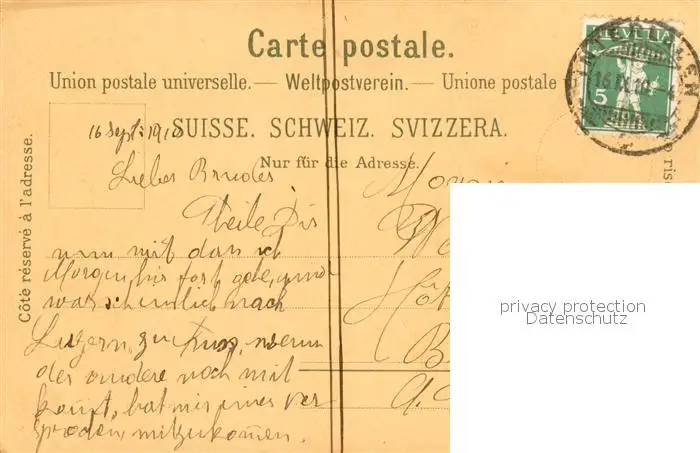 Carte postale.
Union postale universelle. — Weltpostverein. — Unione postale u
SUISSE. SCHWEIZ. SVIZZERA.
Nur für die Adresse.
Côté réservé à l'adresse.
HELVETIA
5
16 Sept. 1910
Lieber Bruder
Theile Dir
nun mit dass ich
Morgen hir fort gehe, und
warscheinlich nach
Luzern, zu Fuss, wenn
der andere noch mit
komt, hat mir eines ver
sproden, mitzukom̄en.
Hôt
B
privacy protection
Datenschutz